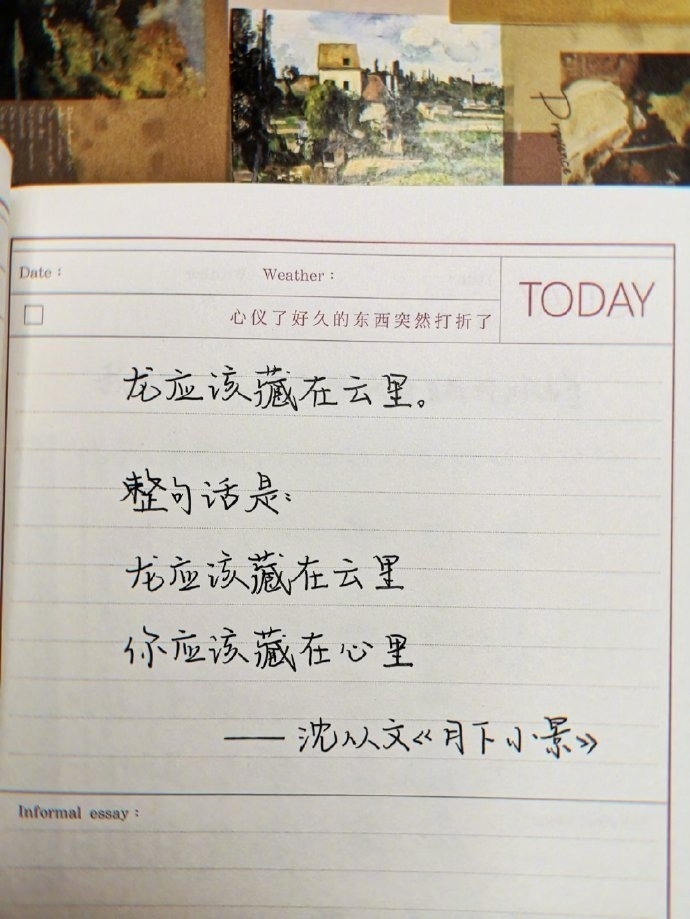 Provence
Date：
Weather：
TODAY
心仪了好久的东西突然打折了
龙应该藏在云里。
整句话是：
龙应该藏在云里
你应该藏在心里
——沈从文《月下小景》
Informal essay：